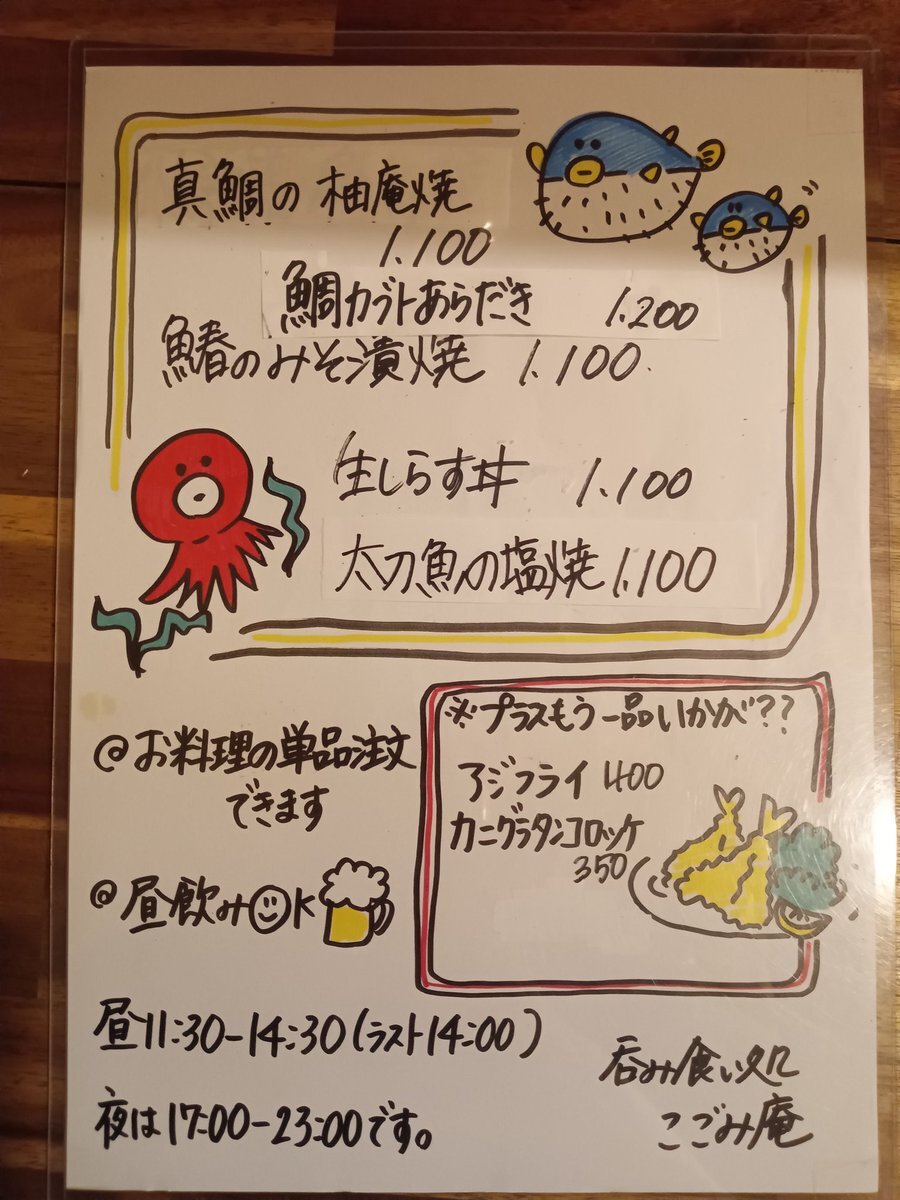 真鯛の柚庵焼
1.100
鯛カブトあらだき 1.200
鰆のみそ漬焼 1.100.
生しらす丼 1.100
太刀魚の塩焼 1.100
※プラスもう一品いかが??
アジフライ 400
カニグラタンコロッケ
350
@お料理の単品注文
できます
@昼飲み☺K
昼11:30-14:30(ラスト14:00)
夜は17:00-23:00です。
呑み食い処
こごみ庵